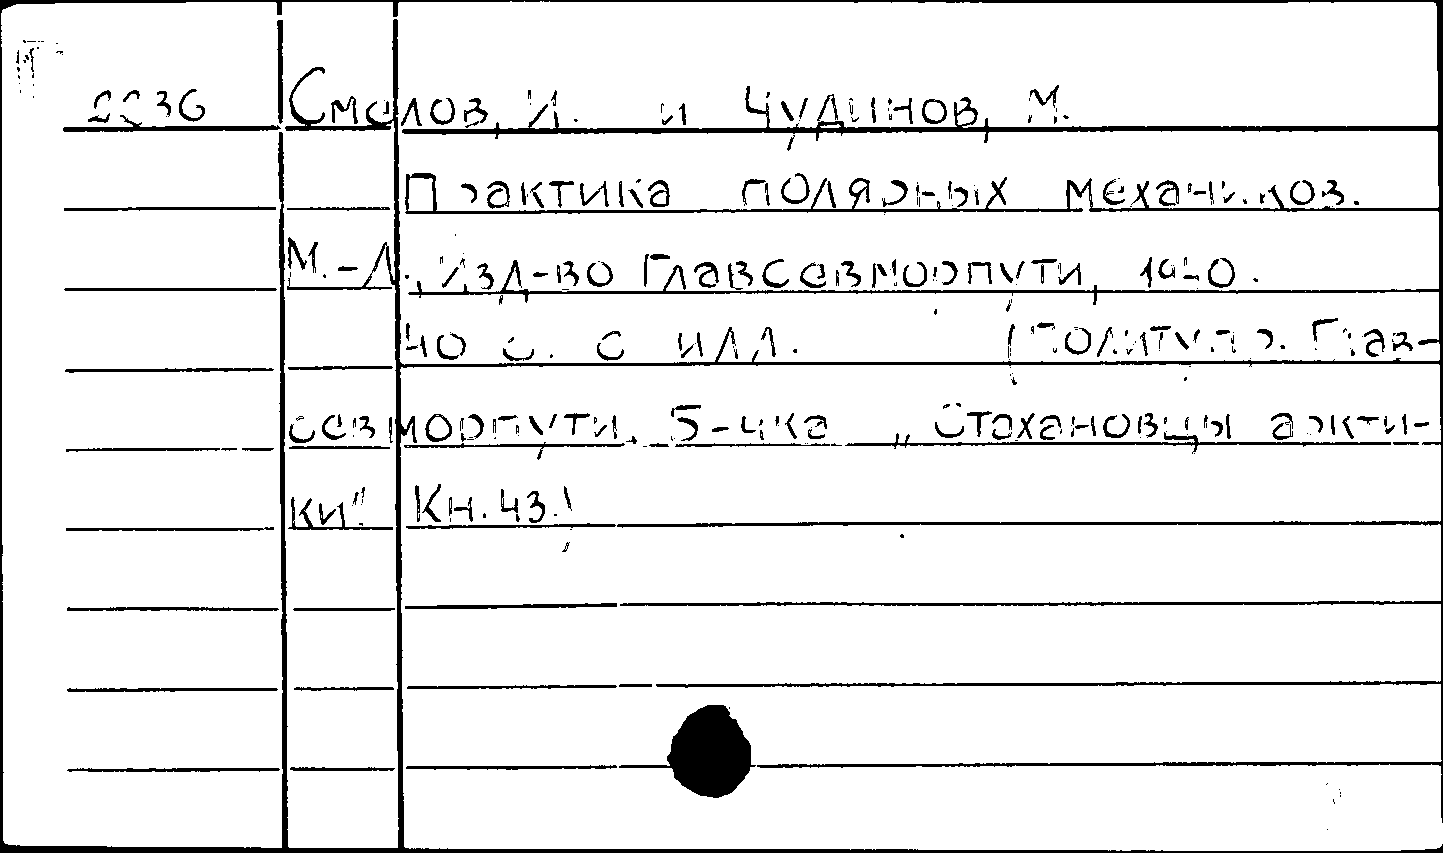 Смолов, И. и Чудинов, М.
Практика полярных механиков.
М.-Л., Изд-во Главсевморпути, 1940.
40 с. с илл. (Политупр. Глав-
севморпути. Б-чка „Стахановцы аркти-
ки". Кн. 43.)